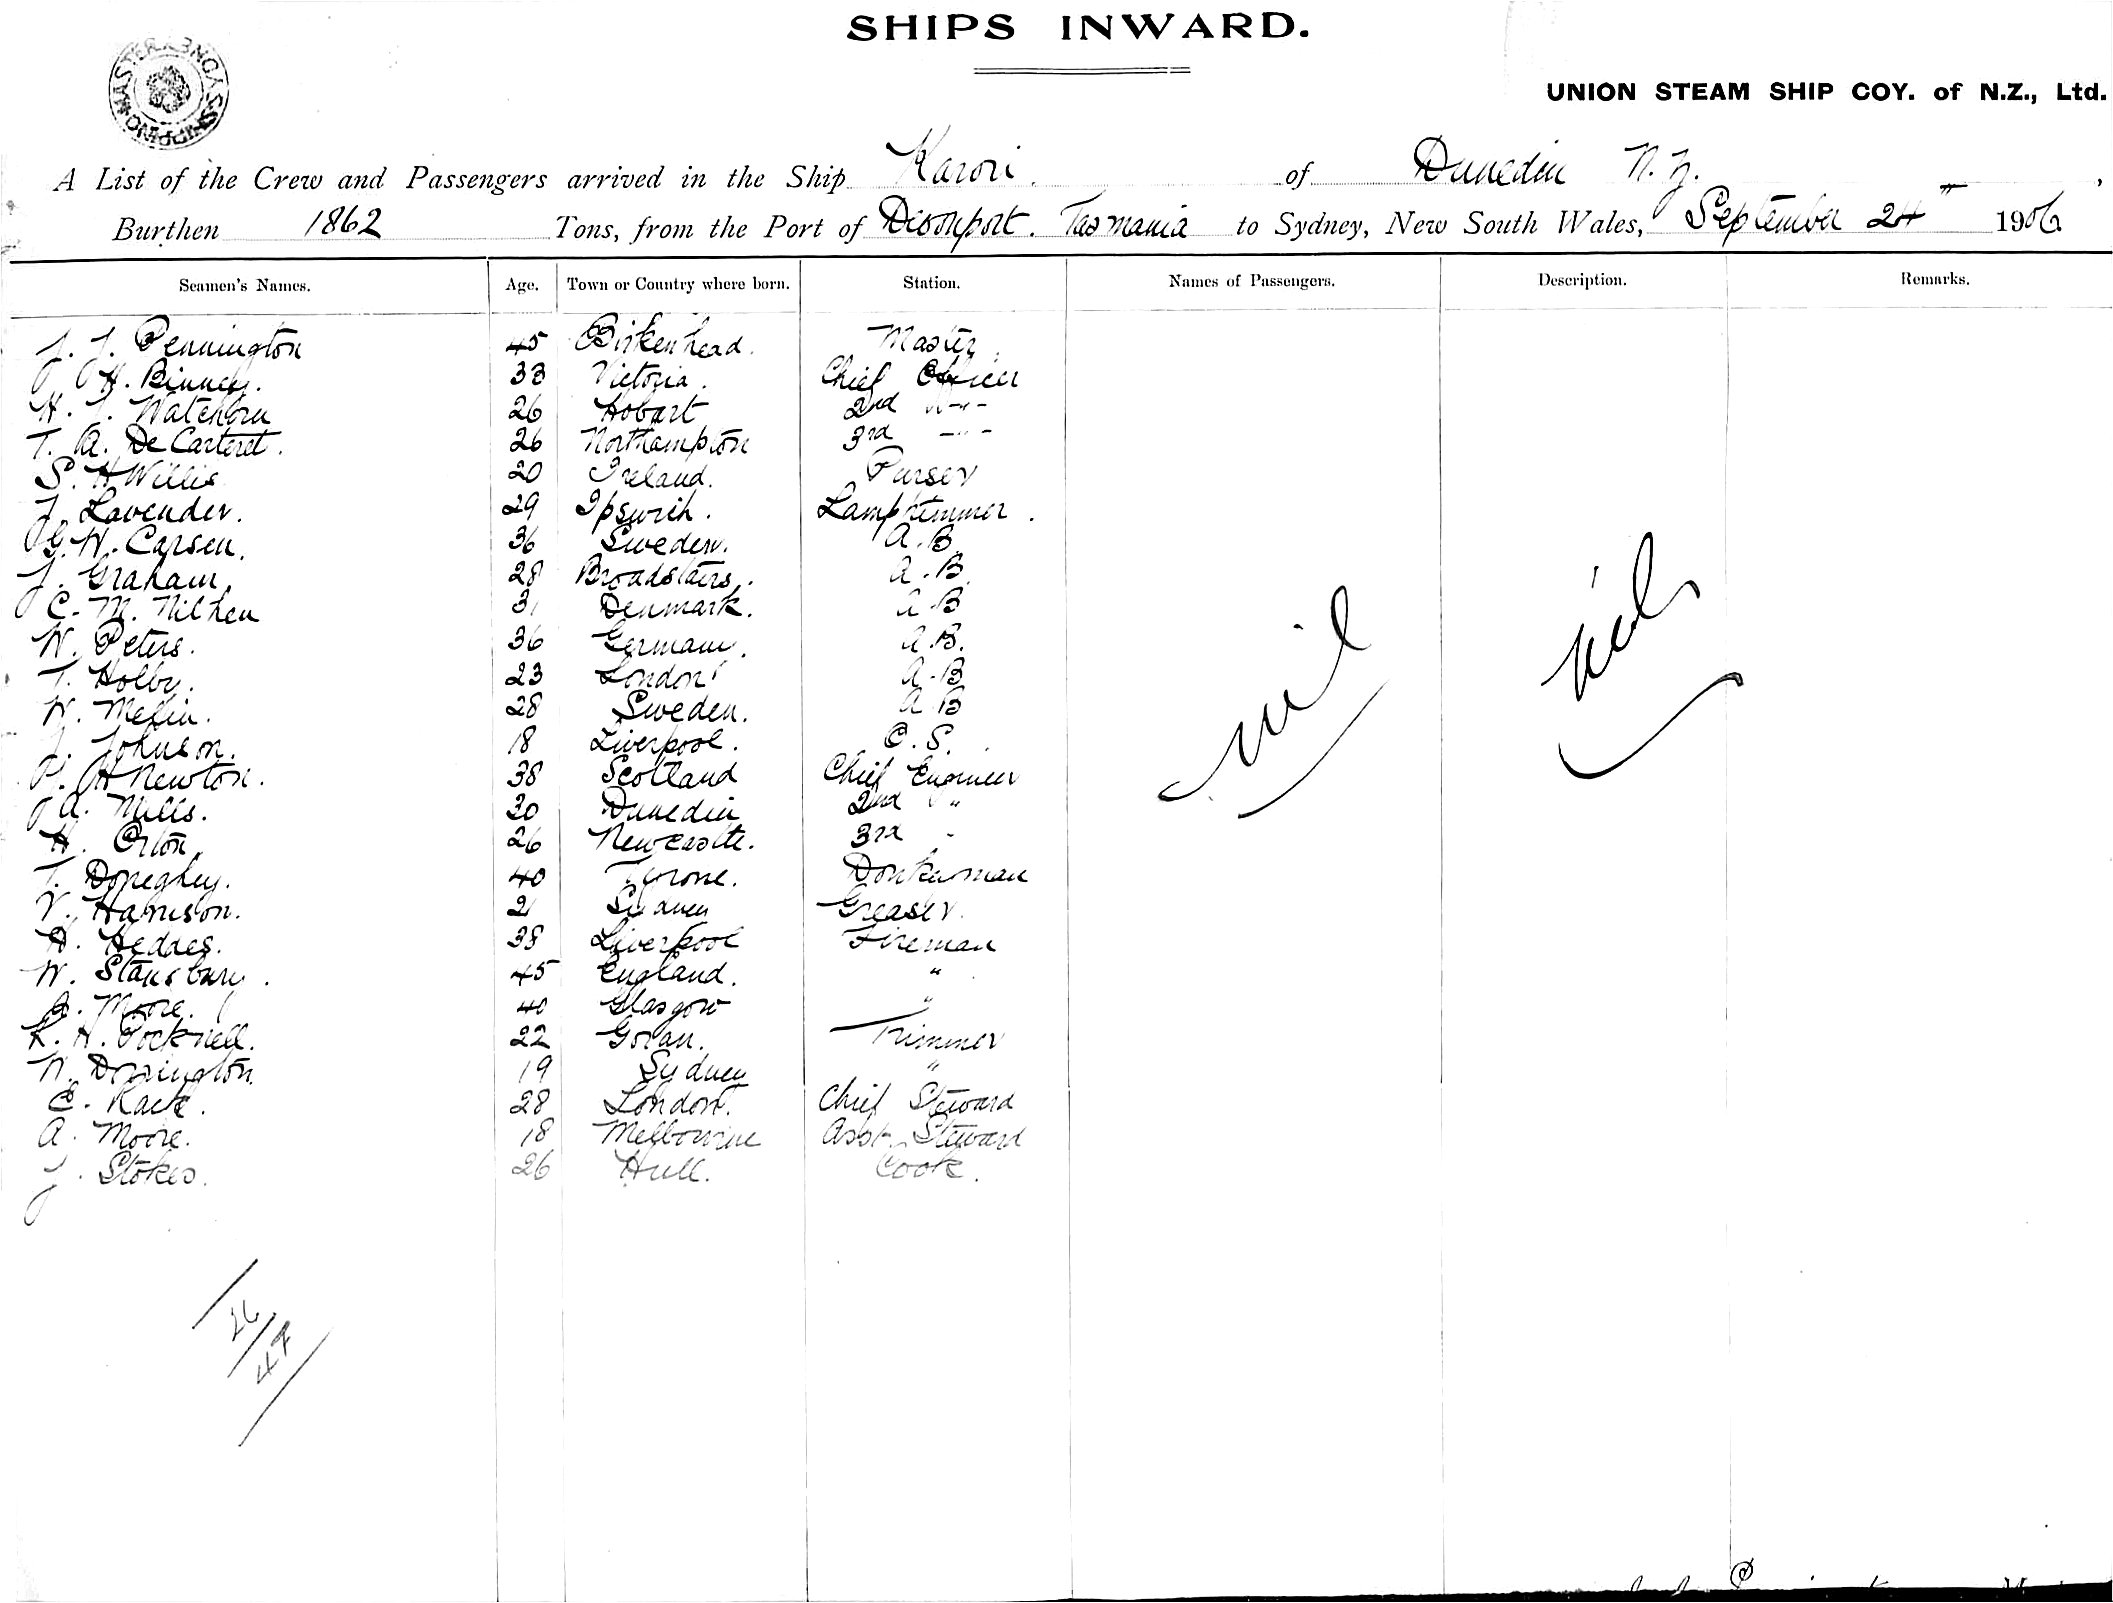 SHIPS INWARD.
UNION STEAM SHIP COY. of N.Z., Ltd.
A List of the Crew and Passengers arrived in the Ship Karori of Dunedin N.Z.,
Burthen 1862 Tons, from the Port of Devonport. Tasmania to Sydney, New South Wales, September 24th 1906
Seamen's Names. Age. Town or Country where born. Station. Names of Passengers. Description. Remarks.
J. J. Pennington 45 Birkenhead. Master.
J. H. Binney. 33 Victoria. Chief Officer
H. J. Watchorn 26 Hobart 2nd -"-
T. A. De Carteret. 26 Northampton 3rd -"-
S. H Willis 20 Ireland. Purser
J. Lavender. 29 Ipswich. Lamptrimmer.
G. H. Carsen. 36 Sweden. A.B.
J. Graham. 28 Broadstairs. A.B.
C. M. Nilhen 31 Denmark. A.B
W. Peters. 36 Germany. A.B.
T. Holby. 23 London A.B
W. Melin. 28 Sweden. A B
J. Johnson. 18 Liverpool. O.S.
P. H Newton. 38 Scotland Chief Engineer
A. Mills. 30 Dunedin 2nd "
H. Orton. 26 Newcastle. 3rd "
T. Doneghey. 40 Tyrone. Donkeyman
V. Harrison. 21 Sydney Greaser.
H. Hedges. 38 Liverpool Fireman
W. Stansbury. 45 England. "
Moore. 40 Glasgow "
R. H. Pocknell. 22 Goran. Trimmer
W. Dorrington. 19 Sydney "
E. Rack. 28 London. Chief Steward
A. Moore. 18 Melbourne Asst. Steward
J. Stokes. 26 Hull. Cook.
nil nil
26/47